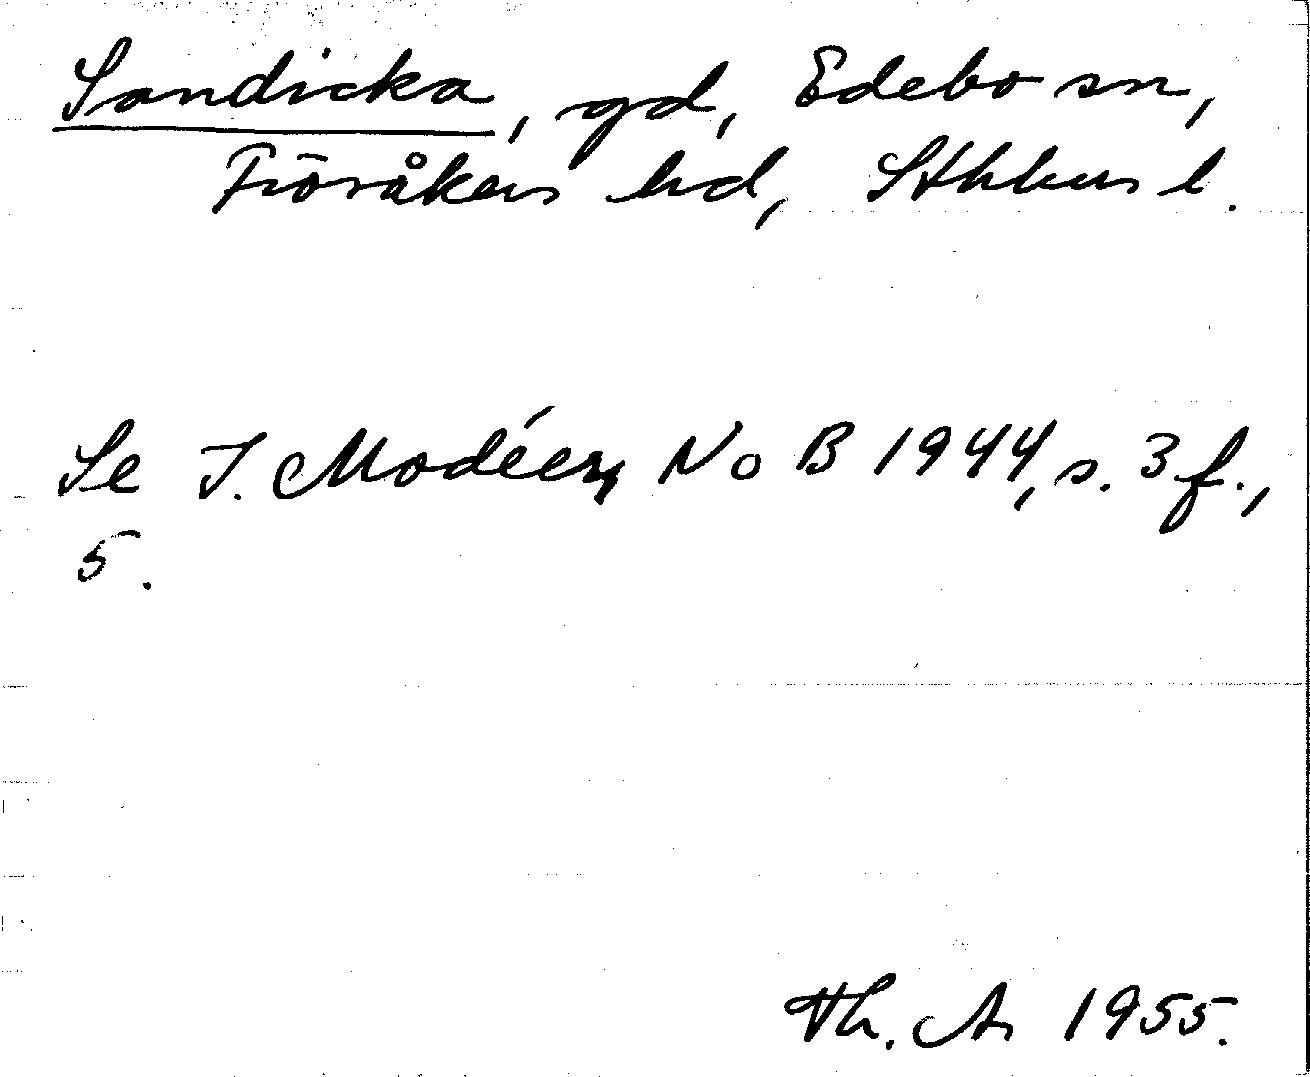 Sandicka, gd, Edebo sn,
Frösåkers hd, Sthlms l.
Se I. Modéer, NoB 1944, s. 3 f.,
5.
Th. A. 1955.